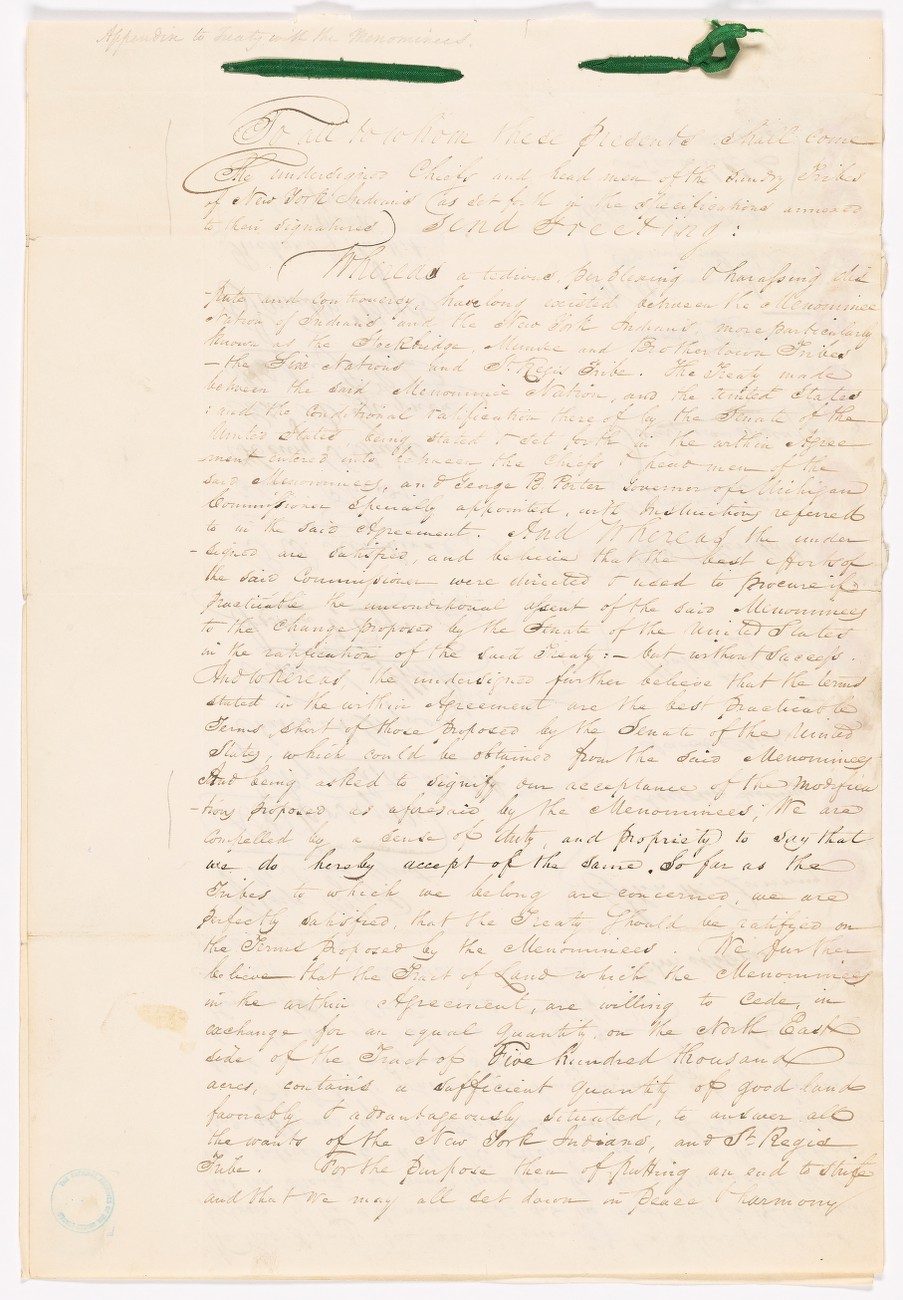 Appendix to Treaty with the Menominees.
To all to whom these presents shall come
The undersigned Chiefs and head men of the sundry Tribes
of New York Indians (as set forth in the specifications annexed
to their signatures) Send Greeting:
Whereas a tedious, perplexing & harassing dis-
-pute and controversy, have long existed between the Menominee
Nation of Indians and the New York Indians, more particularly
known as the Stockbridge, Munsee and Brothertown Tribes
— the Six Nations and St. Regis Tribe. The Treaty made
between the said Menominee Nation, and the United States
: and the conditional ratification thereof by the Senate of the
United States, being stated & set forth in the within Agree
ment entered into between the Chiefs & head men of the
said Menominees, and George B. Porter Governor of Michigan
Commissioner specially appointed, with Instructions referred
to in the said Agreement. And Whereas the under
-signed are satisfied, and believe that the best efforts of
the said Commissioner were directed & used to procure if
practicable the unconditional assent of the said Menominees
to the change proposed by the Senate of the United States
in the ratification of the said Treaty: — but without success.
And whereas, the undersigned further believe that the terms
stated in the within Agreement are the best practicable
Terms, short of those proposed by the Senate of the United
States, which could be obtained from the said Menominees
And being asked to signify our acceptance of the modifica
-tions proposed as aforesaid by the Menominees; We are
compelled by a sense of duty, and propriety to say that
we do hereby accept of the same. So far as the
Tribes to which we belong are concerned, we are
perfectly satisfied, that the Treaty should be ratified on
the Terms proposed by the Menominees. We further
believe that the Tract of Land which the Menominees
in the within Agreement, are willing to cede, in
exchange for an equal quantity on the North East
side of the Tract of Five hundred thousand
acres, contains a sufficient quantity of good land
favorably & advantageously situated, to answer all
the wants of the New York Indians, and St. Regis
Tribe. For the purpose then of putting an end to strife
and that we may all set down in peace & harmony